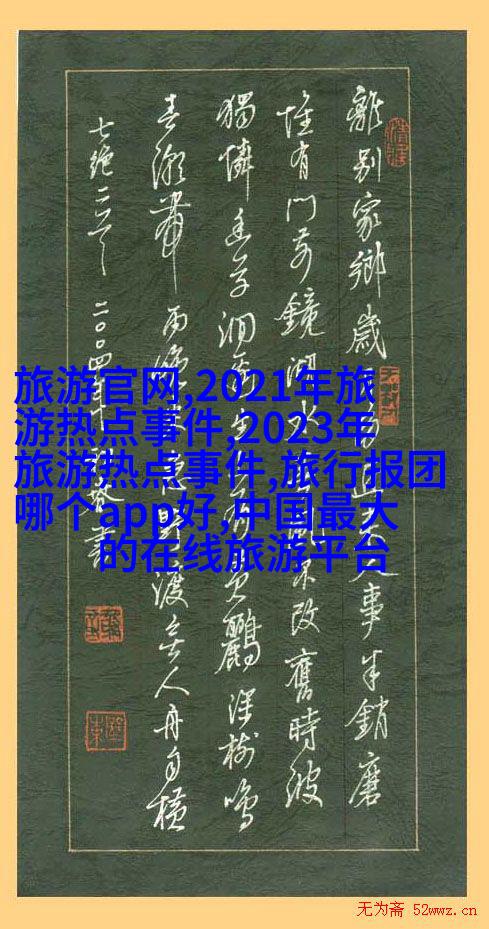 離別家鄉歲 人事半銷磨
惟有門前鏡湖水 不改舊時波
獨憐幽草澗邊生 有黃鸝深樹鳴
春潮帶雨 野渡無人舟自橫
七絕二首 二〇〇四年 書
旅游官网,2021年旅
游热点事件,2023年
旅游热点事件,旅行报团
哪个app好,中国最大
的在线旅游平台
无为斋 52wwz.cn